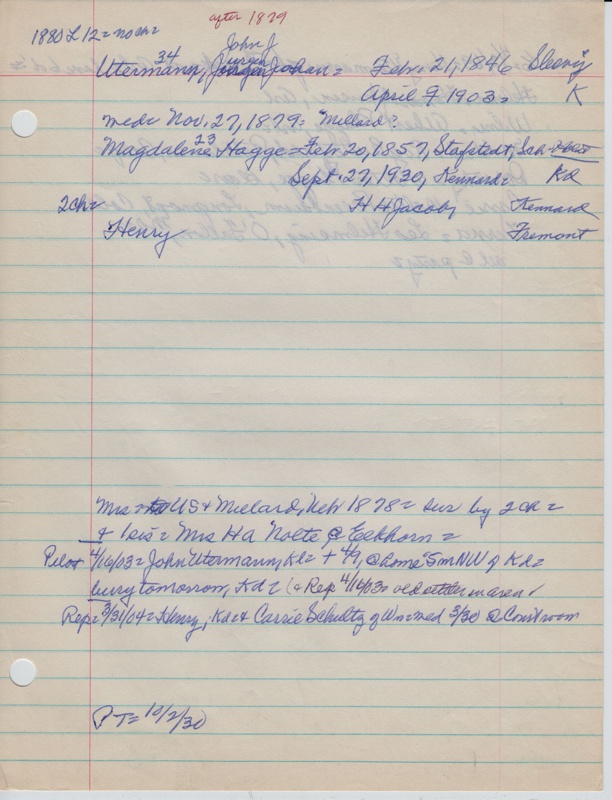 after 1879
1880 L 12 = no ch =
John J
34 Jurgen
Utermann, Jurgen Johan = Febr. 21, 1846 Slesvig
April 9 1903 = K
med = Nov. 27, 1879 = "Millard?
23
Magdalene Hagge = Febr 20, 1857, Stafstedt,
Sept. 27, 1930, Kennard = Kd
2 ch = H H Jacoby Kennard
Henry Fremont
Mrs = to US & Millard, Nebr 1878 = sur by 2 ch =
& 1 sis = Mrs Ha Nolte @ Elkhorn =
Pilot 4/16/03 = John Utermann, Kd = + 4/9, @ home 5m NW of Kd =
bury tomorrow, Kd = (& Rep 4/14/03 = old settler in area /
Rep = 3/31/04 = Henry, Kd = & Carrie Schultz of Wn = med 3/30 @ Courtroom
PT = 10/2/30